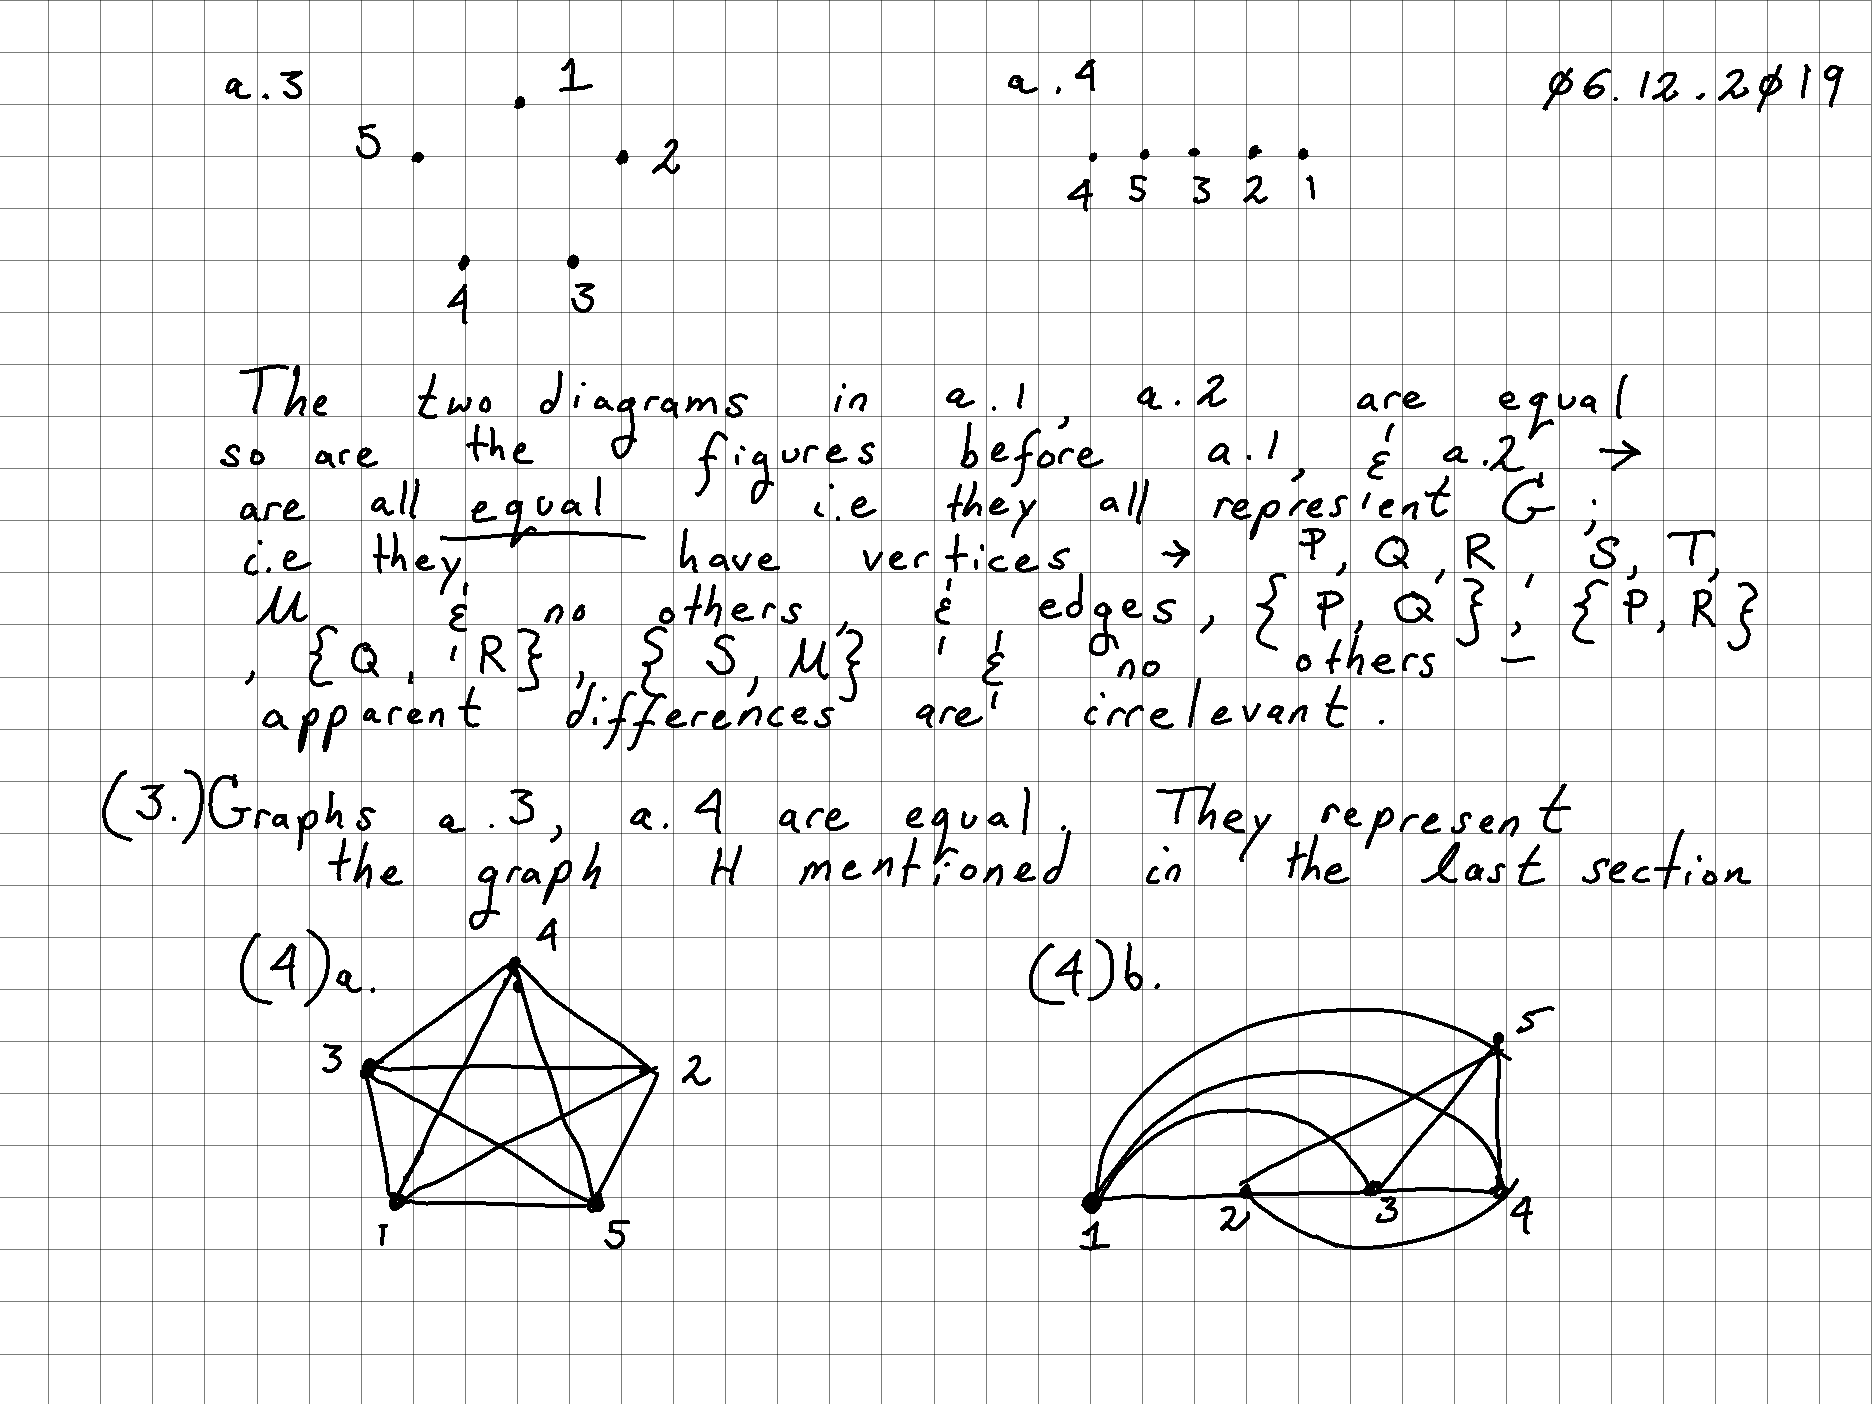 a.3 1 a.4 ø6.12.2ø19
5 2
4 5 3 2 1
4 3
The two diagrams in a.1, a.2 are equal
so are the figures before a.1, & a.2, →
are all equal i.e they all represient G;
i.e they, have vertices, → P, Q, R, S, T,
U & no others, & edges, {P, Q}, {P, R}
, {Q, R}, {S, U} & no others –
apparent differences are irrelevant.
(3.) Graphs a.3, a.4 are equal. They represent
the graph H mentioned in the last section
(4)a. 4 (4)b.
5
3 2
1 5 1 2 3 4